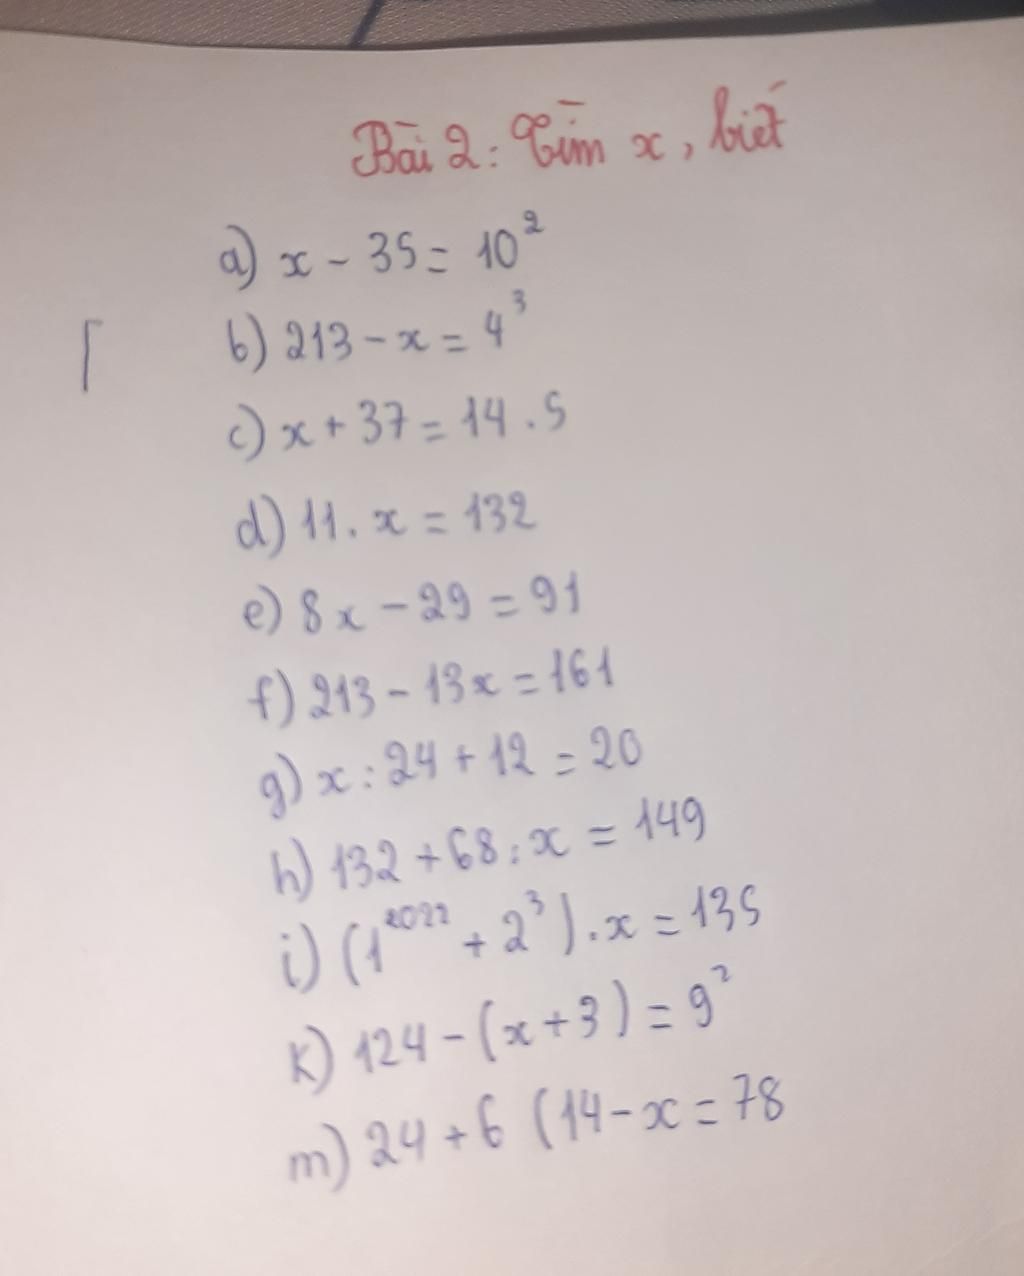 Bài 2: Tìm x, biết
a) x - 35 = 10²
b) 213 - x = 4³
c) x + 37 = 14 . 5
d) 11 . x = 132
e) 8x - 29 = 91
f) 213 - 13x = 161
g) x : 24 + 12 = 20
h) 132 + 68 : x = 149
i) (1²⁰²² + 2³) . x = 135
k) 124 - (x + 3) = 9²
m) 24 + 6 (14 - x = 78